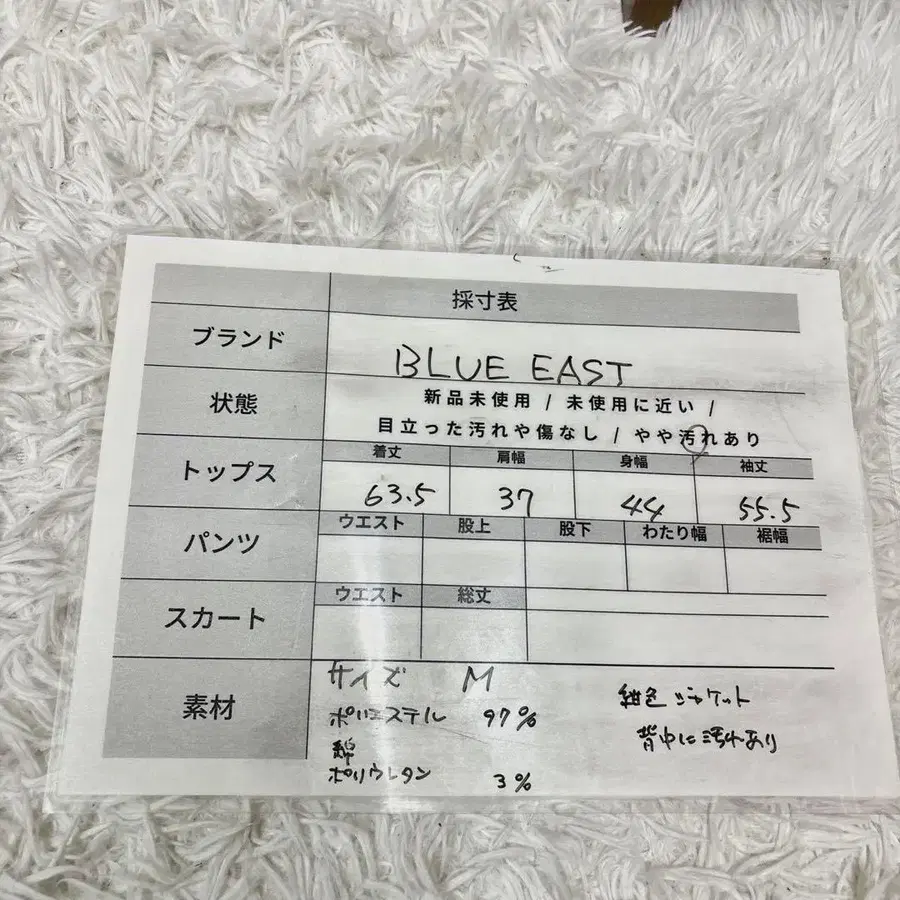 採寸表
ブランド
BLUE EAST
状態
新品未使用 / 未使用に近い /
目立った汚れや傷なし / やや汚れあり
トップス
着丈 肩幅 身幅 袖丈
63.5 37 44 55.5
パンツ
ウエスト 股上 股下 わたり幅 裾幅
スカート
ウエスト 総丈
素材
サイズ M
ポリエステル 97%
綿
ポリウレタン 3%
紺色 ジャケット
背中に汚れあり